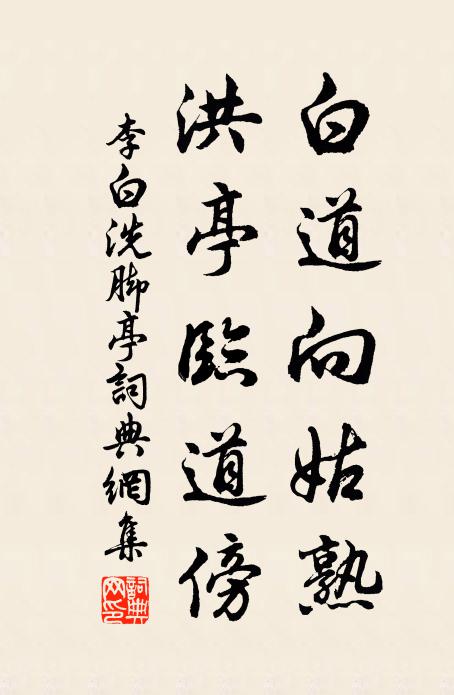 白道向姑熟
洪亭臨道傍
李白洗脚亭詞典網集
詞典網印